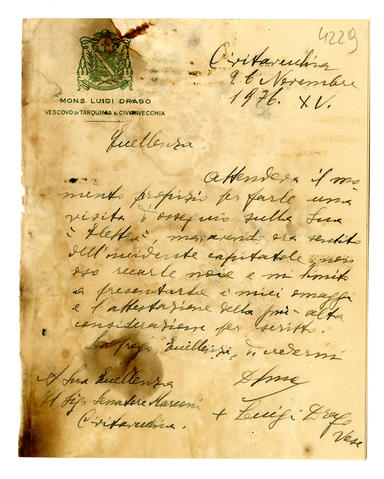 4229
MONS. LUIGI DRAGO
VESCOVO DI TARQUINIA E CIVITAVECCHIA
Civitavecchia
26 Novembre
1936. XV.
Eccellenza
Attendeva il mo-
mento propizio per farle una
visita d'ossequio sulla Sua
"Elettra", ma, avendo ora sentito
dell'incidente capitatole, non
oso recarle noie e mi limito
a presentarle i miei omaggi
e l'attestazione della più alta
considerazione per scritto.
Eccellenza, di credermi
A Sua Eccellenza
Il Sig. Senatore Marconi
Civitavecchia.
+ Luigi Drago
Vesc